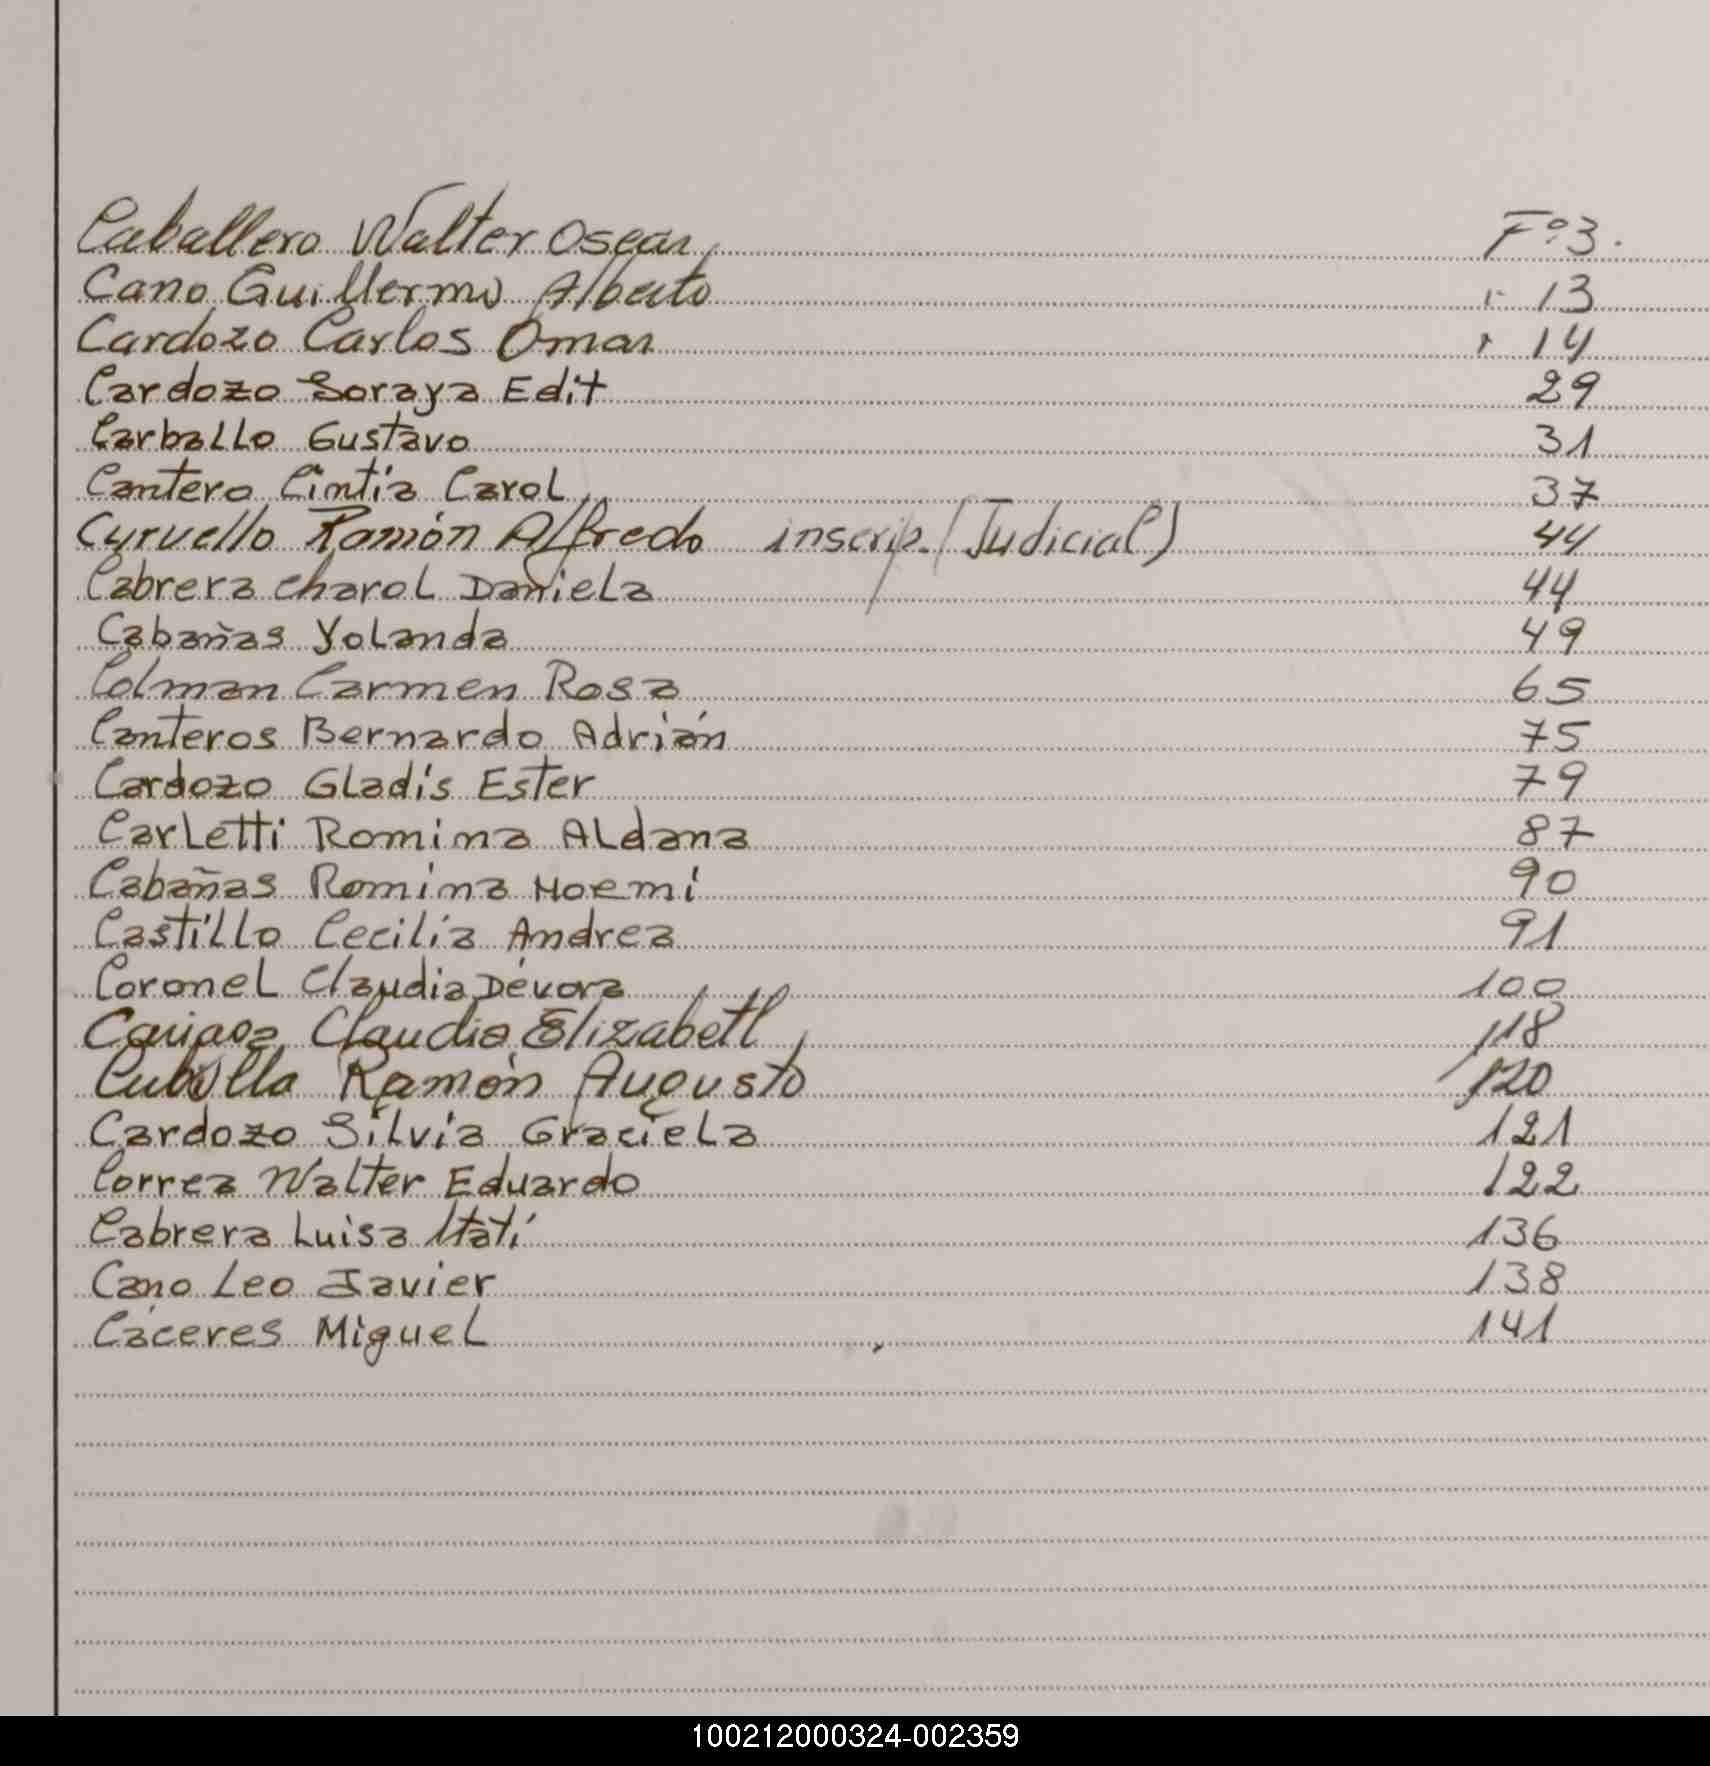 Caballero Walter Oscar Fº 3.
Cano Guillermo Alberto " 13
Cardozo Carlos Omar " 14
Cardozo Soraya Edit 29
Carballo Gustavo 31
Cantero Cintia Carol 37
Curvello Ramón Alfredo inscrip. (Judicial) 44
Cabrera Charol Daniela 44
Cabañas Yolanda 49
Colman Carmen Rosa 65
Canteros Bernardo Adrián 75
Cardozo Gladis Ester 79
Carletti Romina Aldana 87
Cabañas Romina Noemí 90
Castillo Cecilia Andrea 91
Coronel Claudia Dévora 100
Claudia Elizabeth 118
Cubilla Ramón Augusto 120
Cardozo Silvia Graciela 121
Correa Walter Eduardo 122
Cabrera Luisa Itatí 136
Cano Leo Javier 138
Cáceres Miguel 141
100212000324-002359